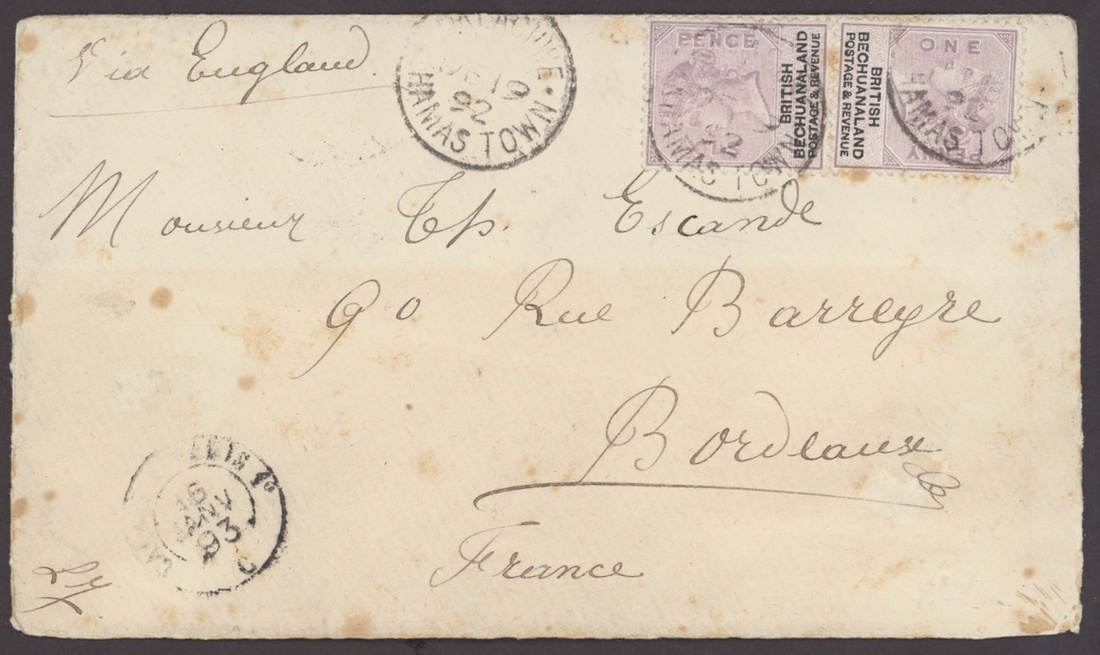 Via England
DE 19
92
KHAMAS TOWN
PENCE
BRITISH
BECHUANALAND
POSTAGE & REVENUE
BRITISH
BECHUANALAND
POSTAGE & REVENUE
ONE
PENNY
92
KHAMAS TOWN
HAMAS TOWN
Monsieur Th. Escande
90 Rue Barreyre
Bordeaux
France
16
JANV
93